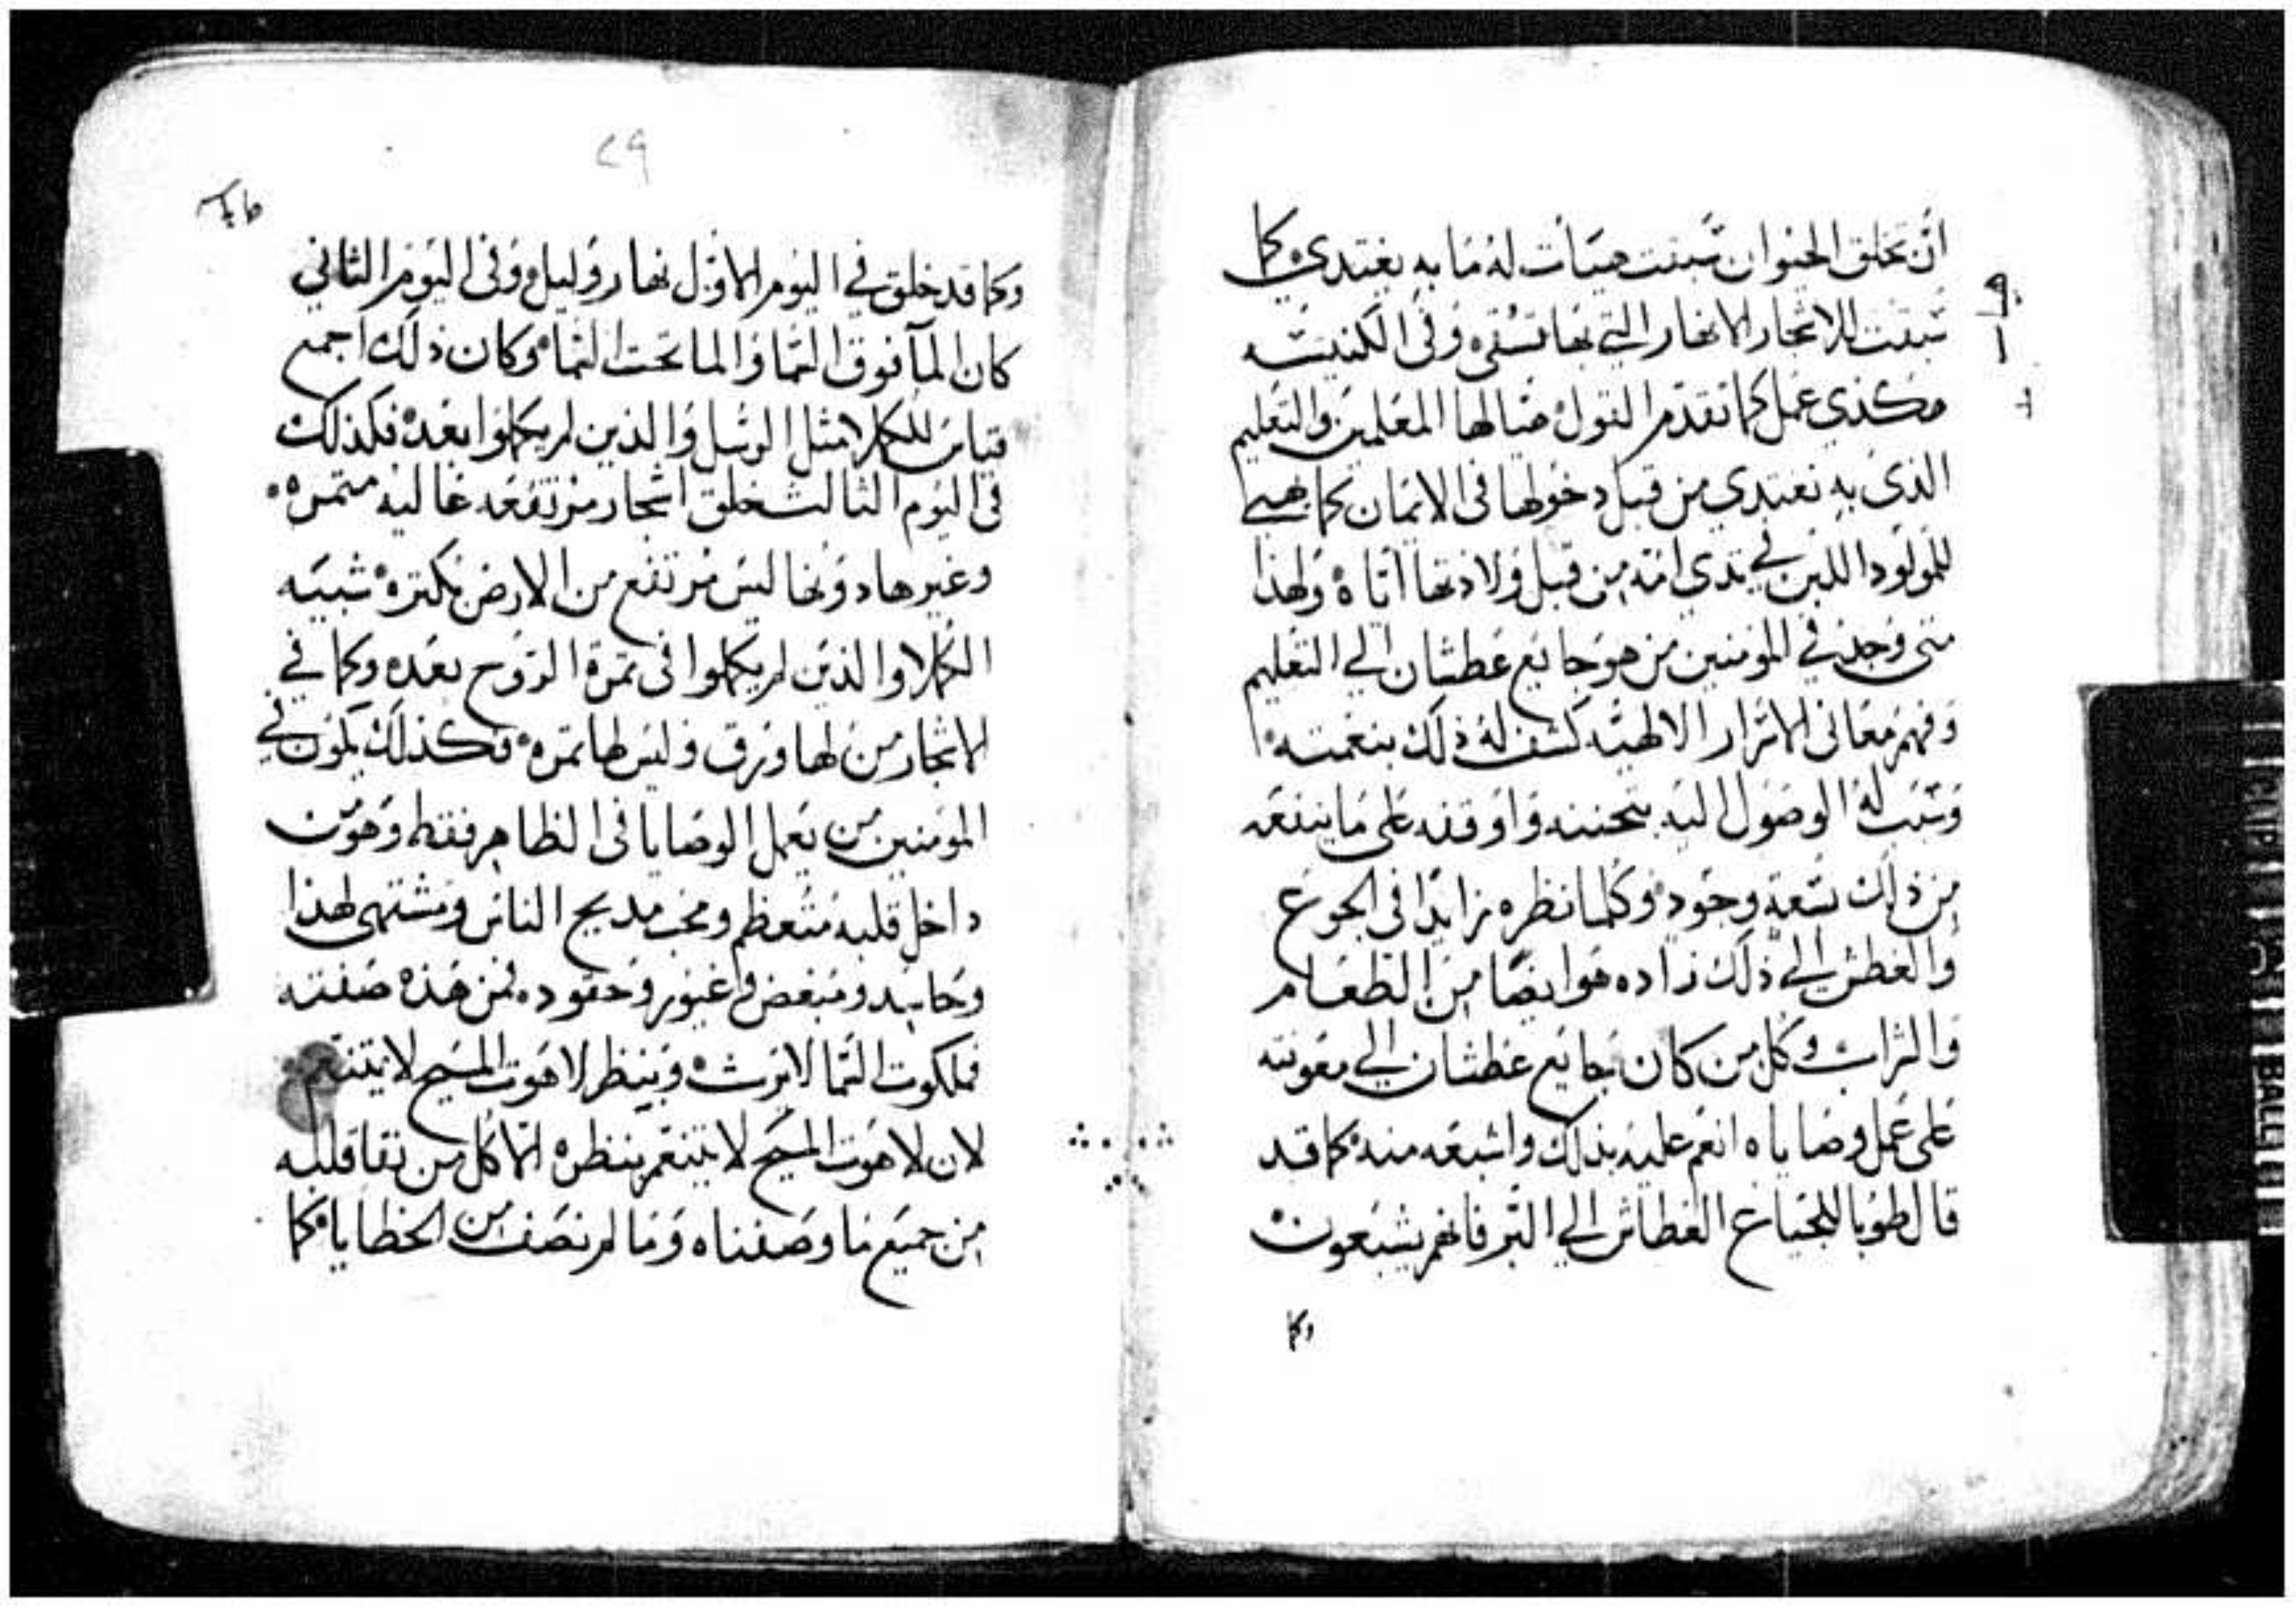 ان يخلق الحيوان سبقت هيات له ما به يغتدي كما
سبقت للاشجار الانهار التي بها تسقى وفي الكنيسه
هكذي عمل كما تقدم القول هيا لها المعلمين والتعليم
الذي به تغتدي من قبل دخولها في الايمان كما هيي
للمولود اللبن في تدي امه من قبل ولادتها اياه ولهذا
متى وجد في المومنين من هو جايع عطشان الي التعليم
وفهم معاني الاسرار الالهيه كشف له ذلك بنعمته
وسبب له الوصول اليه بتحننه واوقفه على ما ينفعه
من ذلك بسعة وجوده وكلما نظره زايدًا في الجوع
والعطش الي ذلك زاده هو ايضًا من الطعام
والشراب وكل من كان جايع عطشان الي معونته
على عمل وصاياه انعم عليه بذلك واشبعه منه كما قد
قال طوبا للجياع العطاش الي البر فانهم يشبعون
وكما
٢٩
وكما قد خلق في اليوم الاول نهار وليل وفي اليوم الثاني
كان الما فوق السما والما تحت السما وكان ذلك اجمع
قياس للكملا مثل الرسل والذين لم يكملوا بعد فكذلك
في اليوم الثالث خلق اشجار مرتفعه عاليه متمره
وغيرها دونها ليس مرتفع من الارض بكتره شبيه
الكملا والذين لم يكملوا في تمرة الروح بعد وكما في
الاشجار من لها ورق وليس لها تمره فكذلك يكون في
المومنين من يعمل الوصايا في الظاهر فقط وهو من
داخل قلبه متعظم ومحب مديح الناس ومشتهي لهذا
وحاسد ومبغض وغيور وحقود فمن هذه صفته
فملكوت السما لا يرث وبنظر لاهوت المسيح لا يتنعم
لان لاهوت المسيح لا يتنعم بنظره الا كل من نقا قلبه
من جميع ما وصفناه وما لم نصف من الخطايا كما